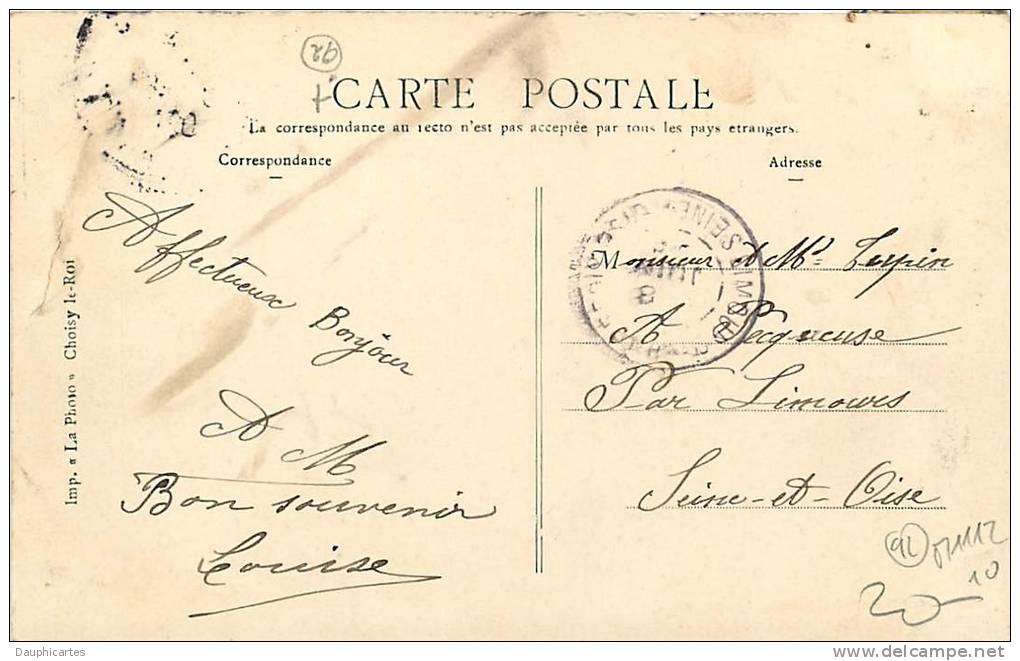 92
CARTE POSTALE
La correspondance au recto n'est pas acceptée par tous les pays etrangers.
Correspondance
Adresse
Affectueux Bonjour
A M
Bon souvenir
Louise
Imp. « La Photo » Choisy-le-Roi
SEINE
LIMOURS
JUIN
8
Monsieur et Md
A Pecqueuse
Par Limours
Seine-et-Oise
92
10
20
Dauphicartes
www.delcampe.net